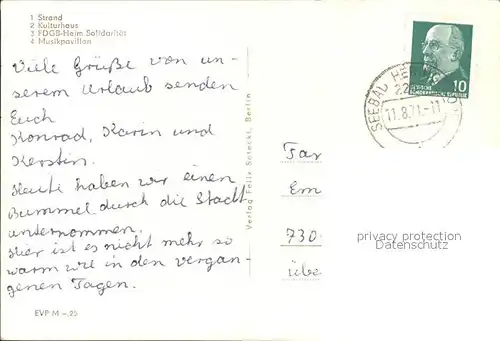 1 Strand
2 Kulturhaus
3 FDGB-Heim Solidarität
4 Musikpavillon
Viele Grüße von un-
serem Urlaub senden
Euch
Konrad, Karin und
Kerstin.
Heute haben wir einen
Bummel durch die Stadt
unternommen.
Hier ist es nicht mehr so
warm wie in den vergan-
genen Tagen.
EVP M –.25
Verlag Felix Setecki, Berlin
10
DEUTSCHE
DEMOKRATISCHE REPUBLIK
SEEBAD
11.8.71.-11
Em
730
übe
privacy protection
Datenschutz